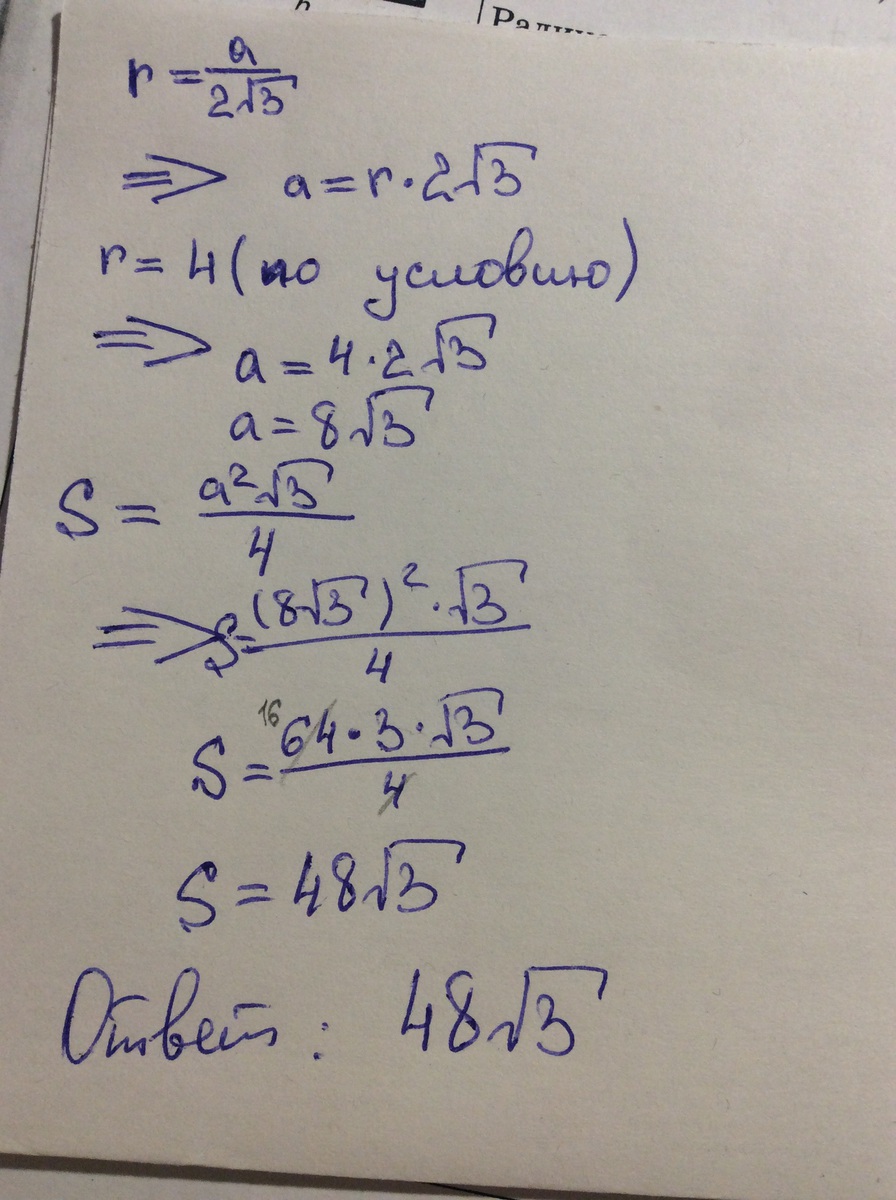 r = a/2√3
=> a = r · 2√3
r = 4 (по условию)
=> a = 4 · 2√3
a = 8√3
S = a²√3/4
=> S = (8√3)² · √3/4
16
S = 64 · 3 · √3/4
S = 48√3
Ответ: 48√3